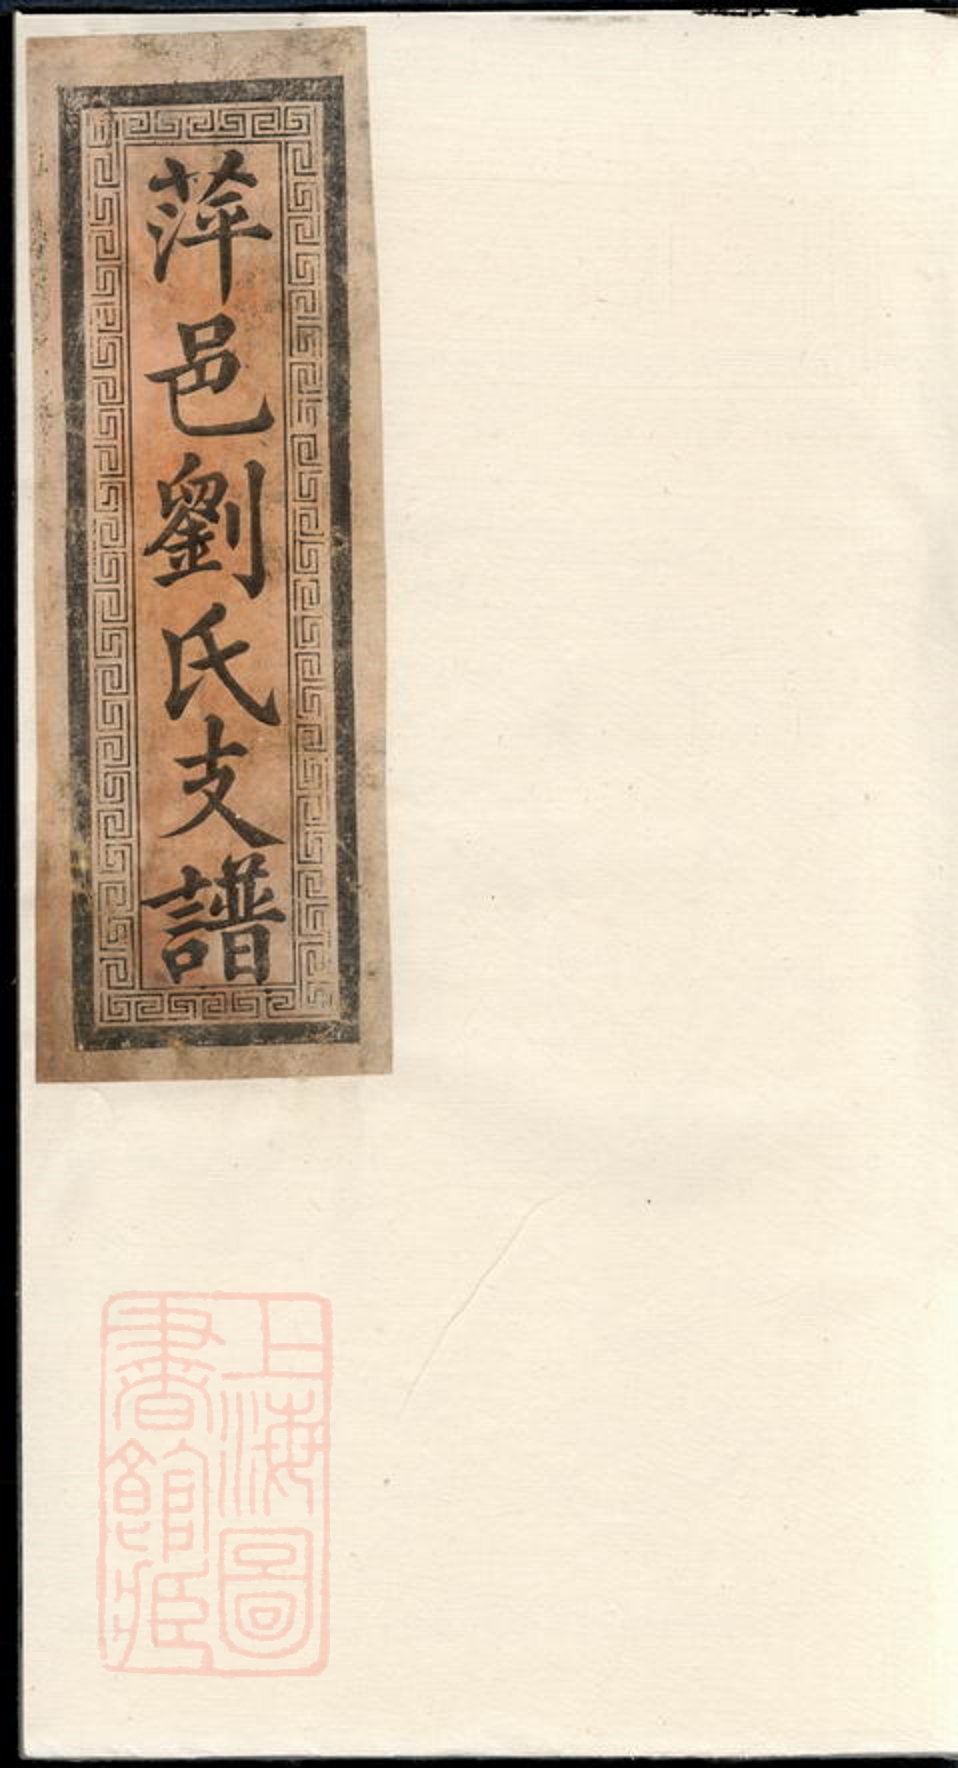 萍邑劉氏支譜
上海圖
書館藏